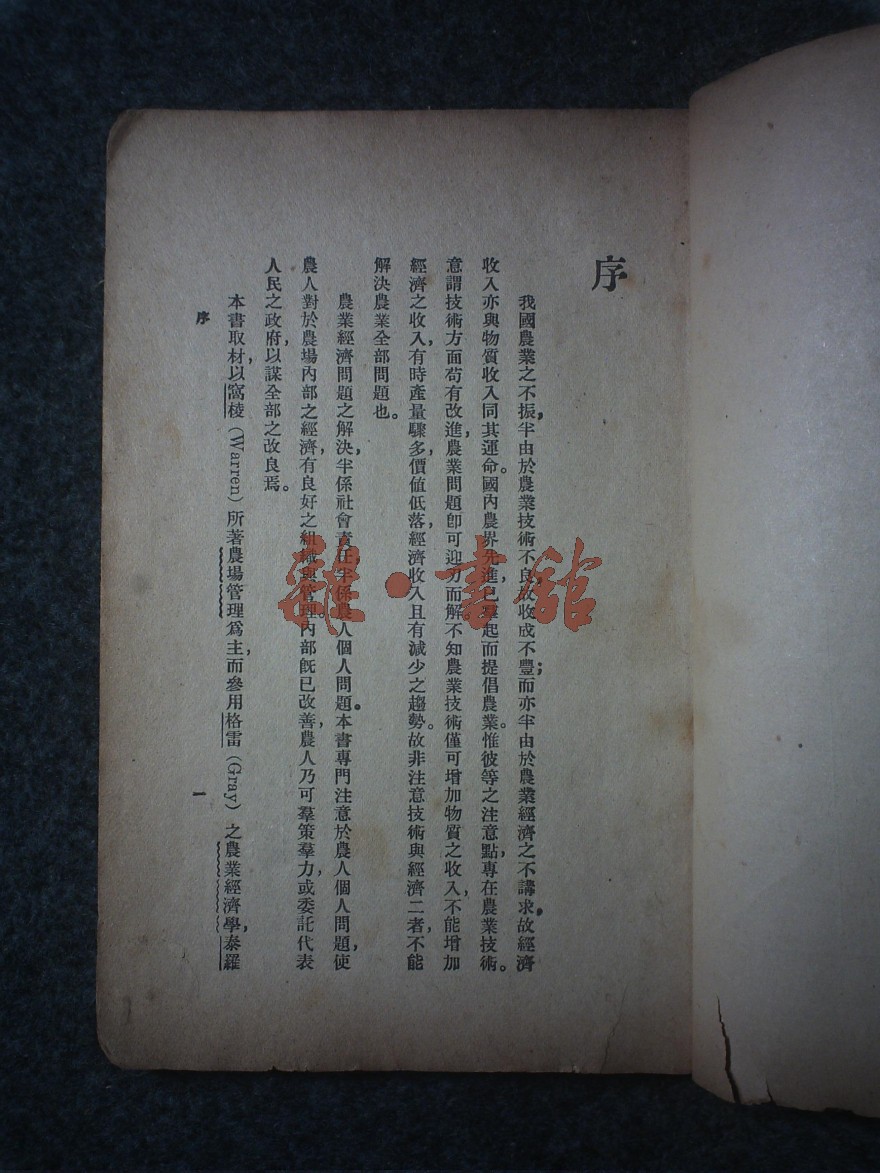 序
我國農業之不振，半由於農業技術不良，故收成不豐；而亦半由於農業經濟之不講求，故經濟
收入亦與物質收入同其運命。國內農界先進，已羣起而提倡農業。惟彼等之注意點，專在農業技術。
意謂技術方面苟有改進，農業問題卽可迎刃而解，不知農業技術僅可增加物質之收入，不能增加
經濟之收入，有時產量驟多，價值低落，經濟收入且有減少之趨勢。故非注意技術與經濟二者，不能
解決農業全部問題也。
農業經濟問題之解決，半係社會責任，半係農人個人問題。本書專門注意於農人個人問題，使
農人對於農場內部之經濟，有良好之組織與管理。內部旣已改善，農人乃可羣策羣力，或委託代表
人民之政府，以謀全部之改良焉。
本書取材，以窩棱（Warren）所著農場管理爲主，而參用格雷（Gray）之農業經濟學，泰羅
序
一
雜·書館